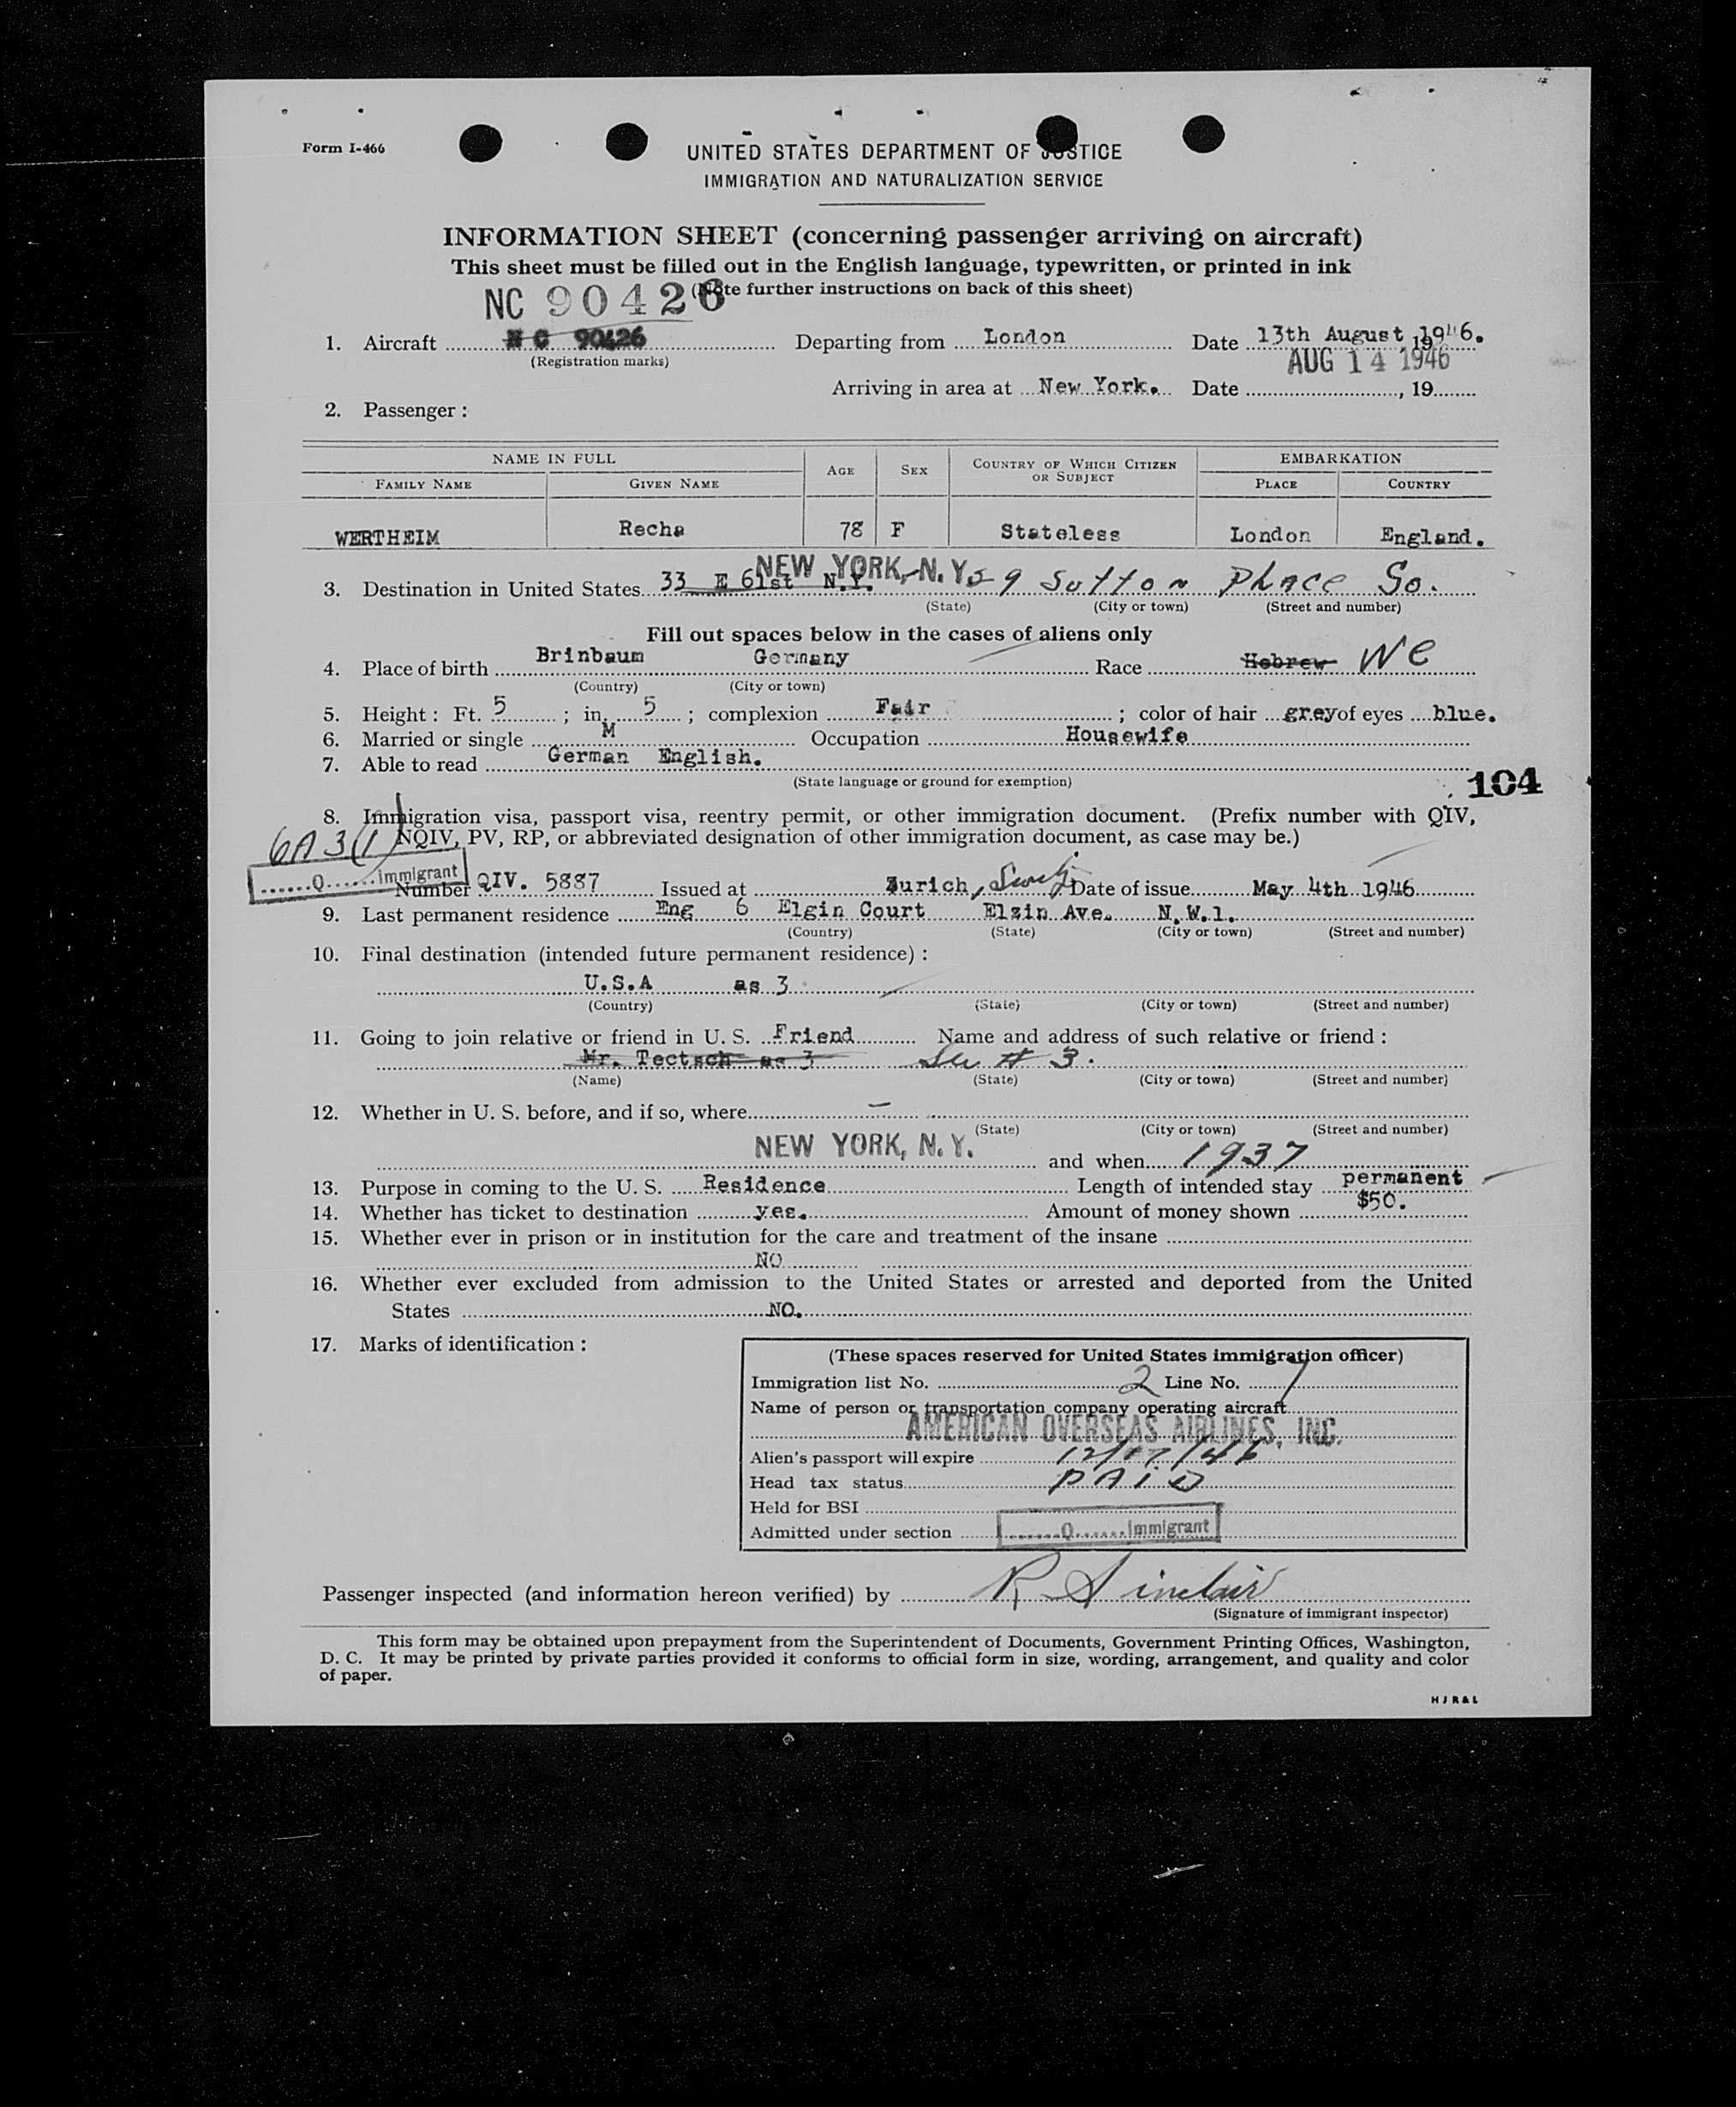 Form I-466
UNITED STATES DEPARTMENT OF JUSTICE
IMMIGRATION AND NATURALIZATION SERVICE
INFORMATION SHEET (concerning passenger arriving on aircraft)
This sheet must be filled out in the English language, typewritten, or printed in ink
(Note further instructions on back of this sheet)
NC 90426
1. Aircraft N C 90426 Departing from London Date 13th August, 1946.
(Registration marks) AUG 14 1946
Arriving in area at New York. Date , 19
2. Passenger :
NAME IN FULL AGE SEX COUNTRY OF WHICH CITIZEN OR SUBJECT EMBARKATION
FAMILY NAME GIVEN NAME PLACE COUNTRY
WERTHEIM Recha 78 F Stateless London England.
NEW YORK, N.Y.
3. Destination in United States 33 E 61st N.Y. 59 Sutton Place So.
(State) (City or town) (Street and number)
Fill out spaces below in the cases of aliens only
4. Place of birth Brinbaum Germany Race Hebrew We
(Country) (City or town)
5. Height : Ft. 5 ; in. 5 ; complexion Fair ; color of hair grey of eyes blue.
6. Married or single M Occupation Housewife
7. Able to read German English.
(State language or ground for exemption)
104
8. Immigration visa, passport visa, reentry permit, or other immigration document. (Prefix number with QIV,
NQIV, PV, RP, or abbreviated designation of other immigration document, as case may be.)
6A3(1)
Q Immigrant
Number QIV. 5887 Issued at Zurich, Switz Date of issue May 4th 1946
9. Last permanent residence Eng 6 Elgin Court Elzin Ave. N.W.1.
(Country) (State) (City or town) (Street and number)
10. Final destination (intended future permanent residence) :
U.S.A as 3
(Country) (State) (City or town) (Street and number)
11. Going to join relative or friend in U. S. Friend Name and address of such relative or friend :
Mr. Tectsch as 3 See # 3.
(Name) (State) (City or town) (Street and number)
12. Whether in U. S. before, and if so, where –
(State) (City or town) (Street and number)
NEW YORK, N.Y. and when 1937
13. Purpose in coming to the U. S. Residence Length of intended stay permanent
14. Whether has ticket to destination yes. Amount of money shown $50.
15. Whether ever in prison or in institution for the care and treatment of the insane
NO
16. Whether ever excluded from admission to the United States or arrested and deported from the United
States NO.
17. Marks of identification :
(These spaces reserved for United States immigration officer)
Immigration list No. 2 Line No. 7
Name of person or transportation company operating aircraft
AMERICAN OVERSEAS AIRLINES, INC.
Alien's passport will expire 12/17/46
Head tax status PAID
Held for BSI
Admitted under section Q Immigrant
Passenger inspected (and information hereon verified) by R Sinclair
(Signature of immigrant inspector)
This form may be obtained upon prepayment from the Superintendent of Documents, Government Printing Offices, Washington,
D. C. It may be printed by private parties provided it conforms to official form in size, wording, arrangement, and quality and color
of paper.
HJR&L